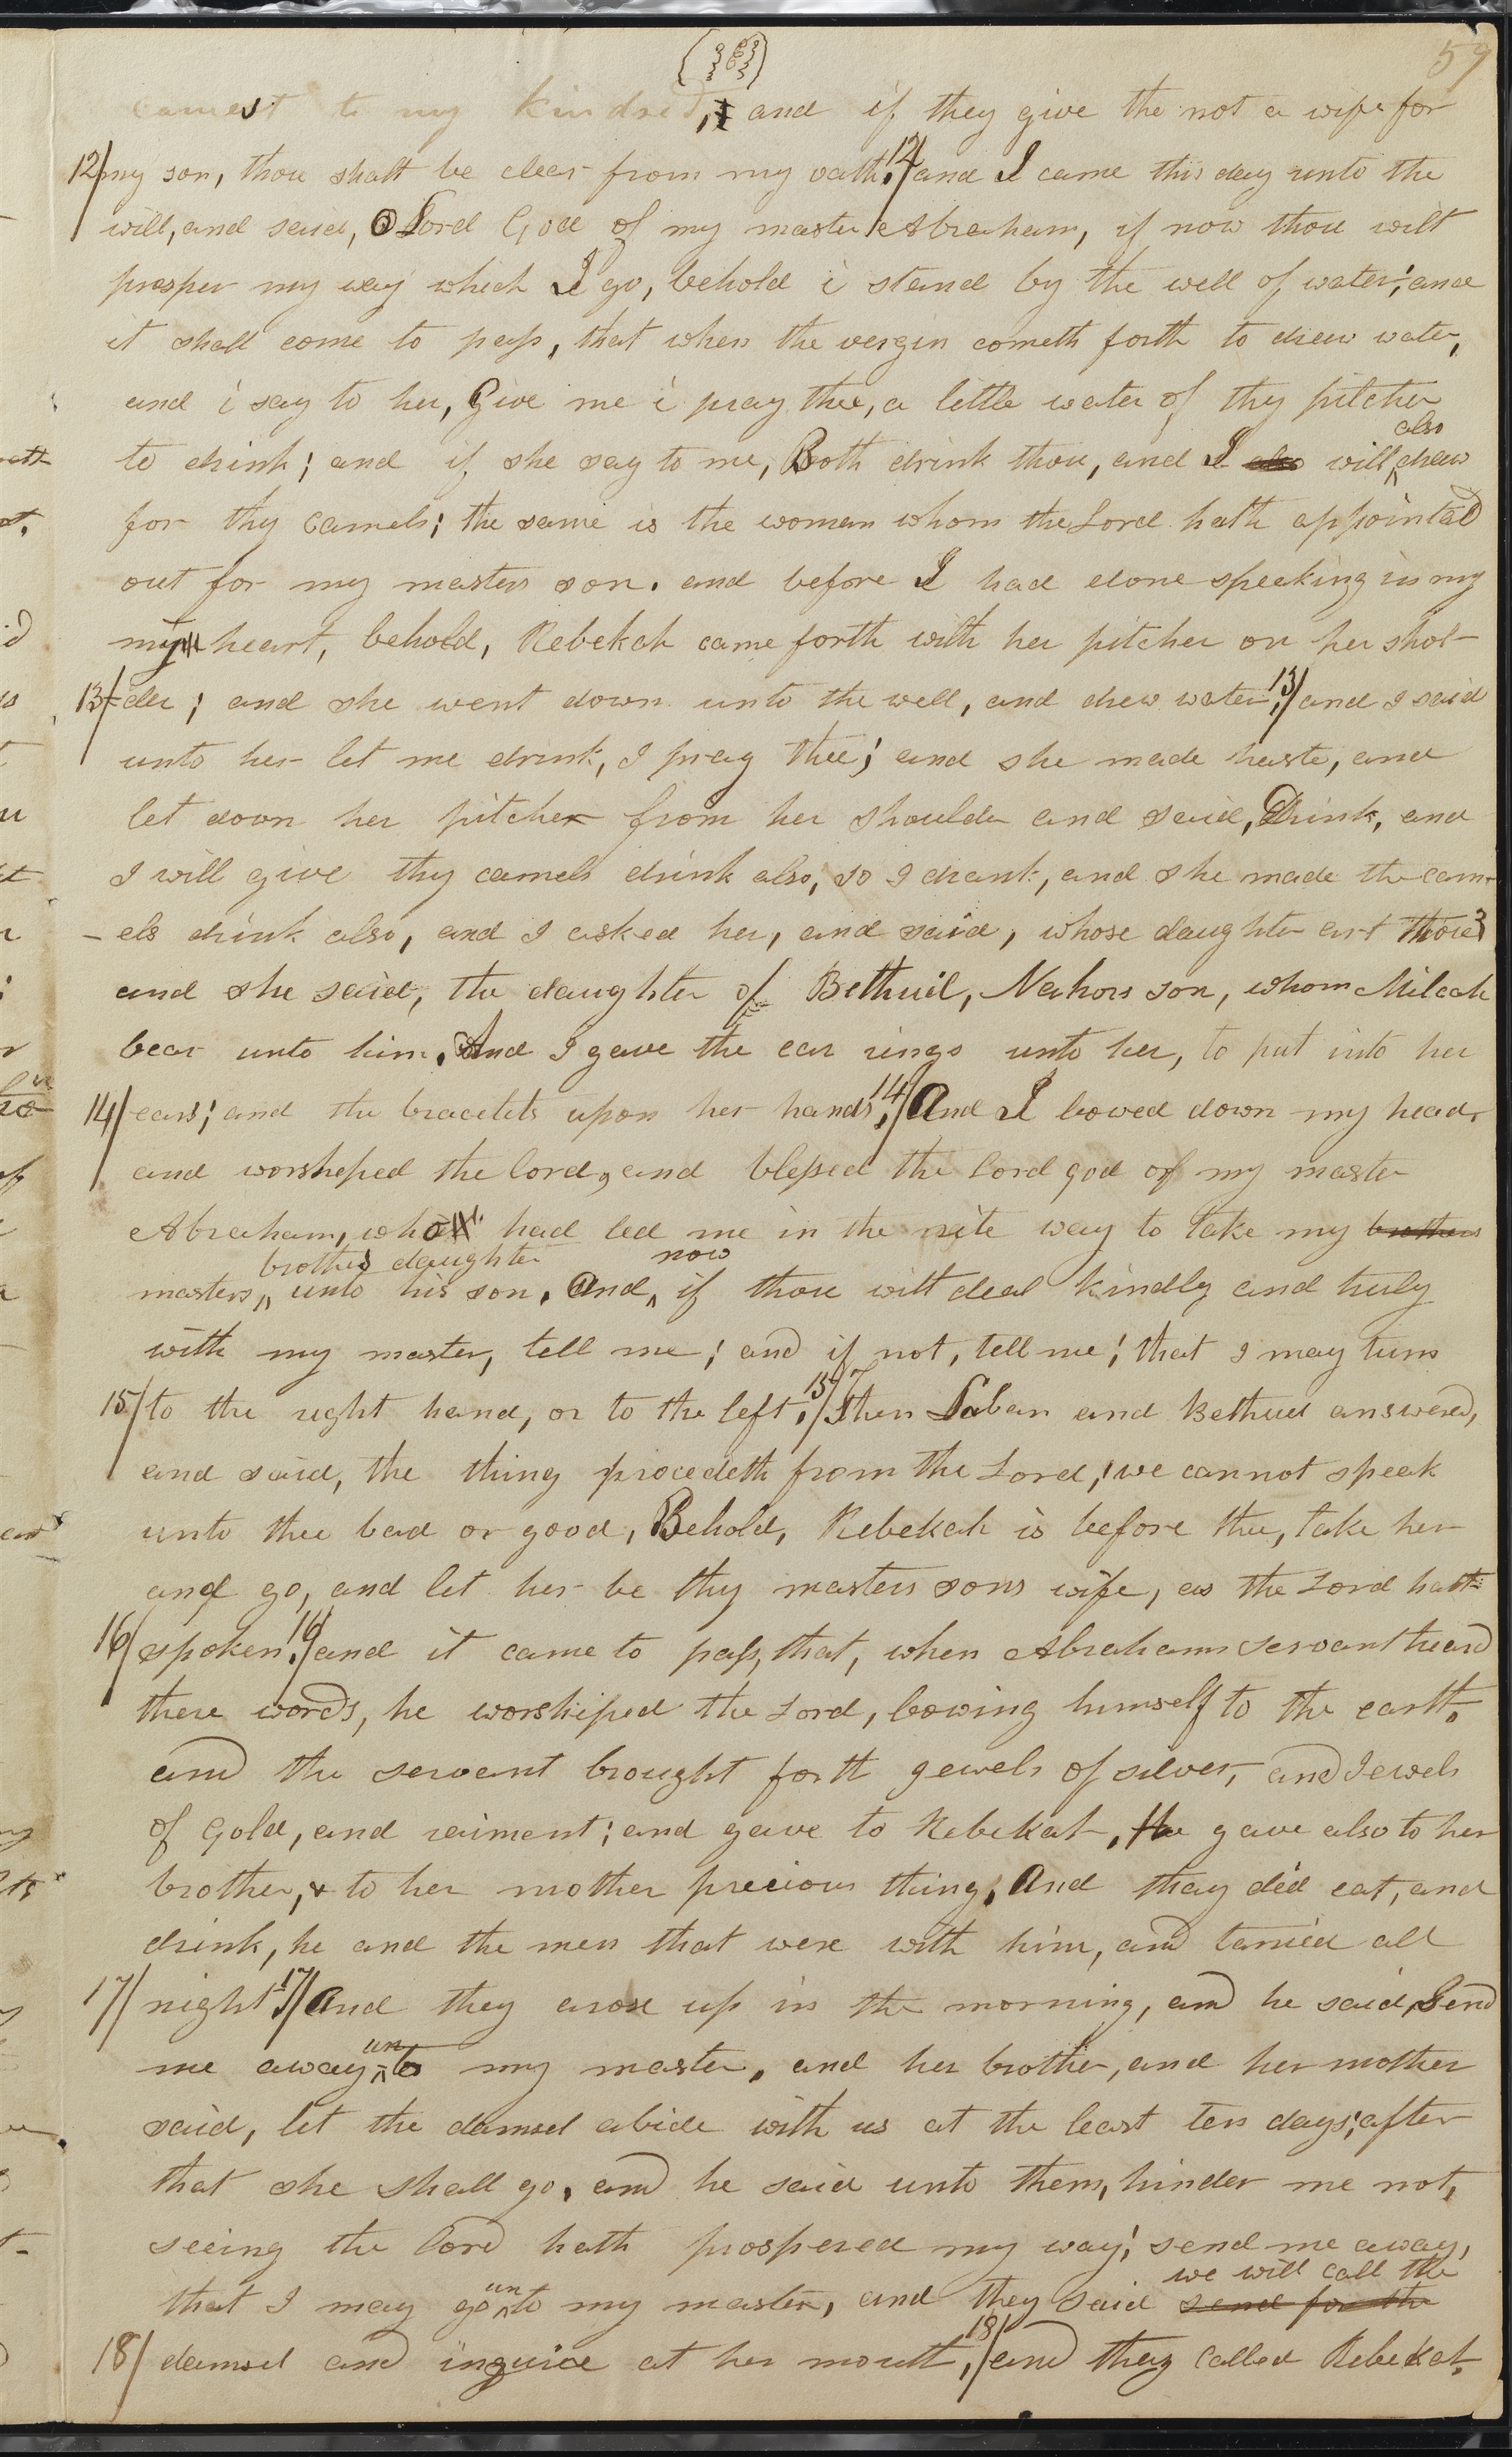 59
camest to my kindred, and if they give the not a wife for
12/ my son, thou shalt be clear from my oath. 12/ and I came this day unto the
will, and said, O Lord God of my master Abraham, if now thou wilt
prosper my way which I go, behold i stand by the well of water; and
it shall come to pass, that when the vergin cometh forth to draw water,
and i say to her, Give me i pray thee, a little water of thy pitcher
to drink; and if she say to me, Both drink thou, and I also will also draw
for thy camels; the same is the woman whom the Lord hath appointed
out for my masters son. and before I had done speeking in my
my heart, behold, Rebekah came forth with her pitcher on her shol-
13/ -der; and she went down unto the well, and drew water; 13/ and I said
unto her let me drink, I pray thee; and she made haste, and
let down her pitcher from her shoulder and said, Drink, and
I will give thy camels drink also, so I drank, and she made the cam-
-els drink also, and I asked her, and said, whose daughter art thou?
and she said, the daughter of Bethuel, Nahors son, whom Milcah
bear unto him. And I gave the ear rings unto her, to put into her
14/ ears; and the bracelets upon her hands; 14/ And I bowed down my head,
and worsheped the lord, and blessed the lord god of my master
Abraham, who had led me in the rite way to take my brothers
masters brothers daughter unto his son. And now if thou wilt deal kindly and truly
with my master, tell me; and if not, tell me; that I may turn
15/ to the right hand, or to the left. 15/ Then Laban and Bethuel answered,
and said, the thing procedeth from the Lord; we cannot speak
unto thee bad or good, Behold, Rebekah is before thee, take her
and go, and let her be thy masters sons wife, as the Lord hath
16/ spoken. 16/ and it came to pass, that, when Abrahams servant heard
these words, he worshiped the Lord, bowing himself to the earth.
and the servant brought forth gewels of silver, and Jewels
of Gold, and raiment; and gave to Rebekah, He gave also to her
brother, & to her mother precious thing. And thay did eat, and
drink, he and the men that were with him, and tarried all
17/ night; 17/ And they arose up in the morning, and he said, Send
me away unto my master, and her brother, and her mother
said, let the damsel abide with us at the least ten days; after
that she shall go. and he said unto them, hinder me not,
seeing the lord hath prospered my way; send me away,
that I may go unto my master, and they said send for the we will call the
18/ damsel and inquire at her mouth, 18/ and they called Rebekah,